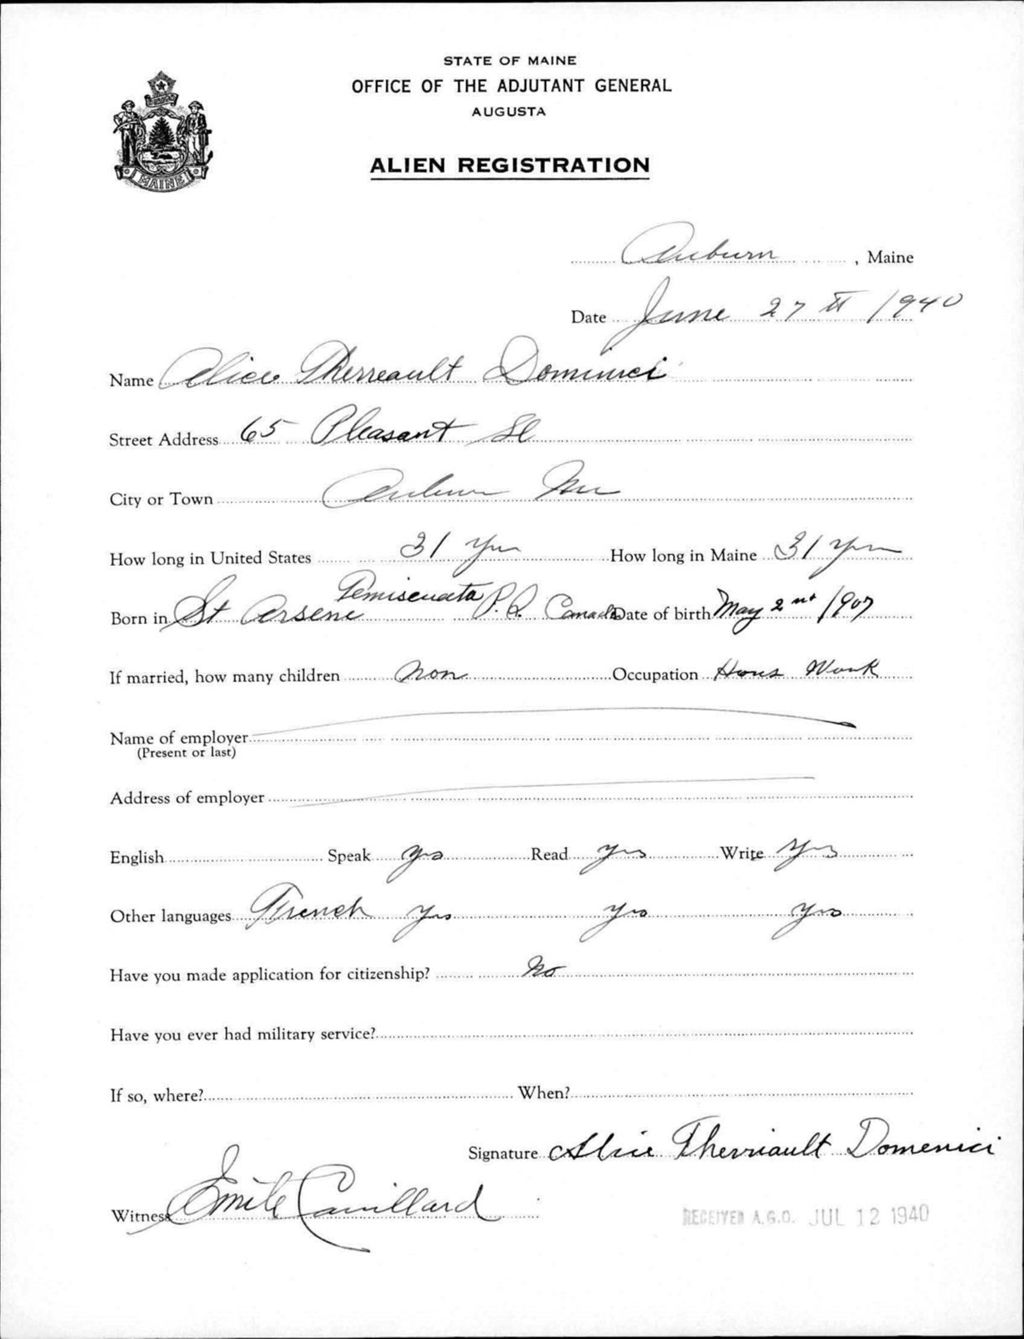 STATE OF MAINE
OFFICE OF THE ADJUTANT GENERAL
AUGUSTA
ALIEN REGISTRATION
MAINE
Auburn, Maine
Date June 27th 1940
Name Alice Therreault Dominici
Street Address 65 Pleasant St
City or Town Auburn Me
How long in United States 31 Yrs How long in Maine 31 Yrs
Born in St Arsene Temiscuata P.Q. Canada Date of birth May 2nd 1907
If married, how many children non Occupation Hous Work
Name of employer
(Present or last)
Address of employer
English Speak yes Read yes Write yes
Other languages French yes yes yes
Have you made application for citizenship? No
Have you ever had military service?
If so, where? When?
Signature Alice Therriault Domenici
Witness Emile
RECEIVED A.G.O. JUL 12 1940